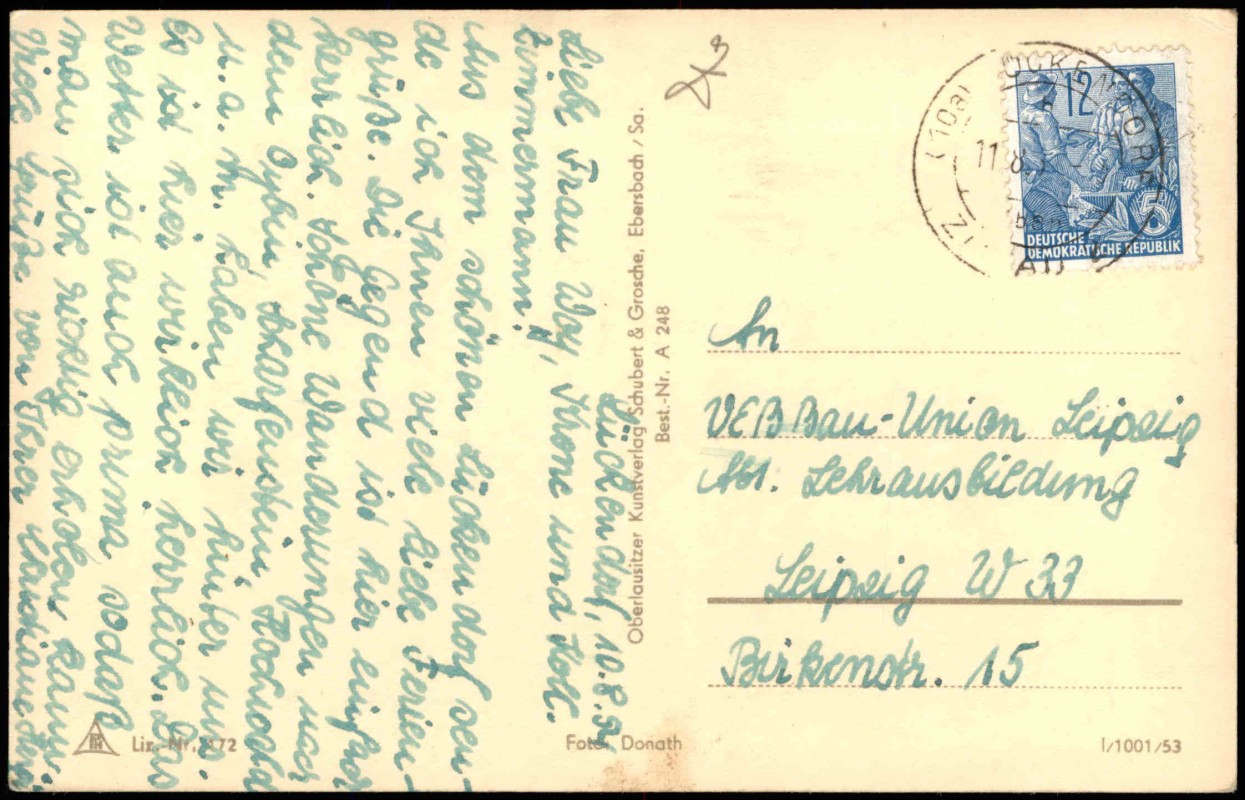 Lückendorf, 10.8.
Liebe Frau Woy, Krone und Koll.
Zimmermann!
Aus dem schönen Lückendorf sen-
de ich Ihnen viele liebe Ferien-
grüße. Die Gegend ist hier einfach
herrlich. Schöne Wanderungen nach
dem Oybin, Scharfenstein, Hochwald
u.a.m. haben wir hinter uns.
Es ist hier wirklich herrlich. Das
Wetter ist auch prima, sodaß
man sich richtig erholen kann.
Viele Grüße von Ihrer
Oberlausitzer Kunstverlag Schubert & Grosche, Ebersbach / Sa.
Best.-Nr. A 248
12
5
DEUTSCHE
DEMOKRATISCHE REPUBLIK
11.8.5
An
VEB Bau-Union Leipzig
Abt. Lehrausbildung
Leipzig W 33
Birkenstr. 15
Liz.-Nr. 7172
Foto: Donath
I/1001/53